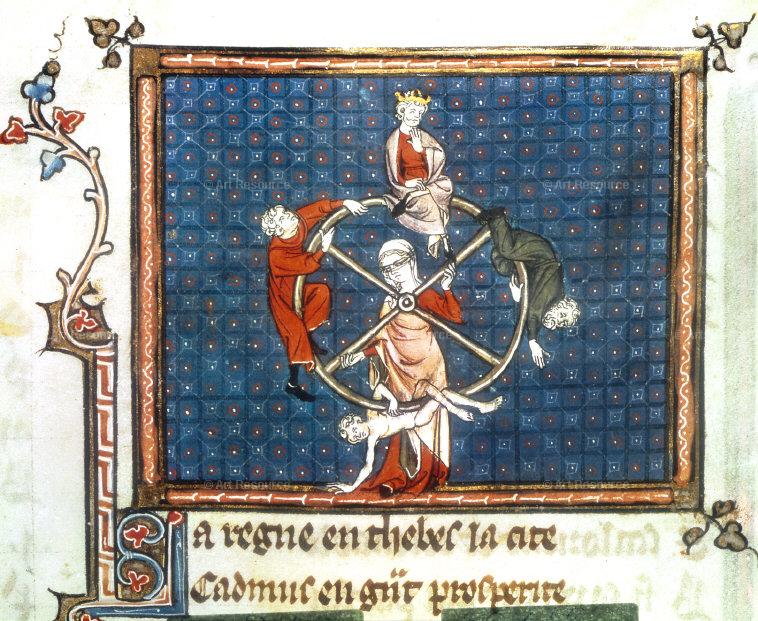 © Art Resource © Art Resource
© Art Resource © Art Resource
Sa regne en thebes la cite
Cadmus en gñt prosperite